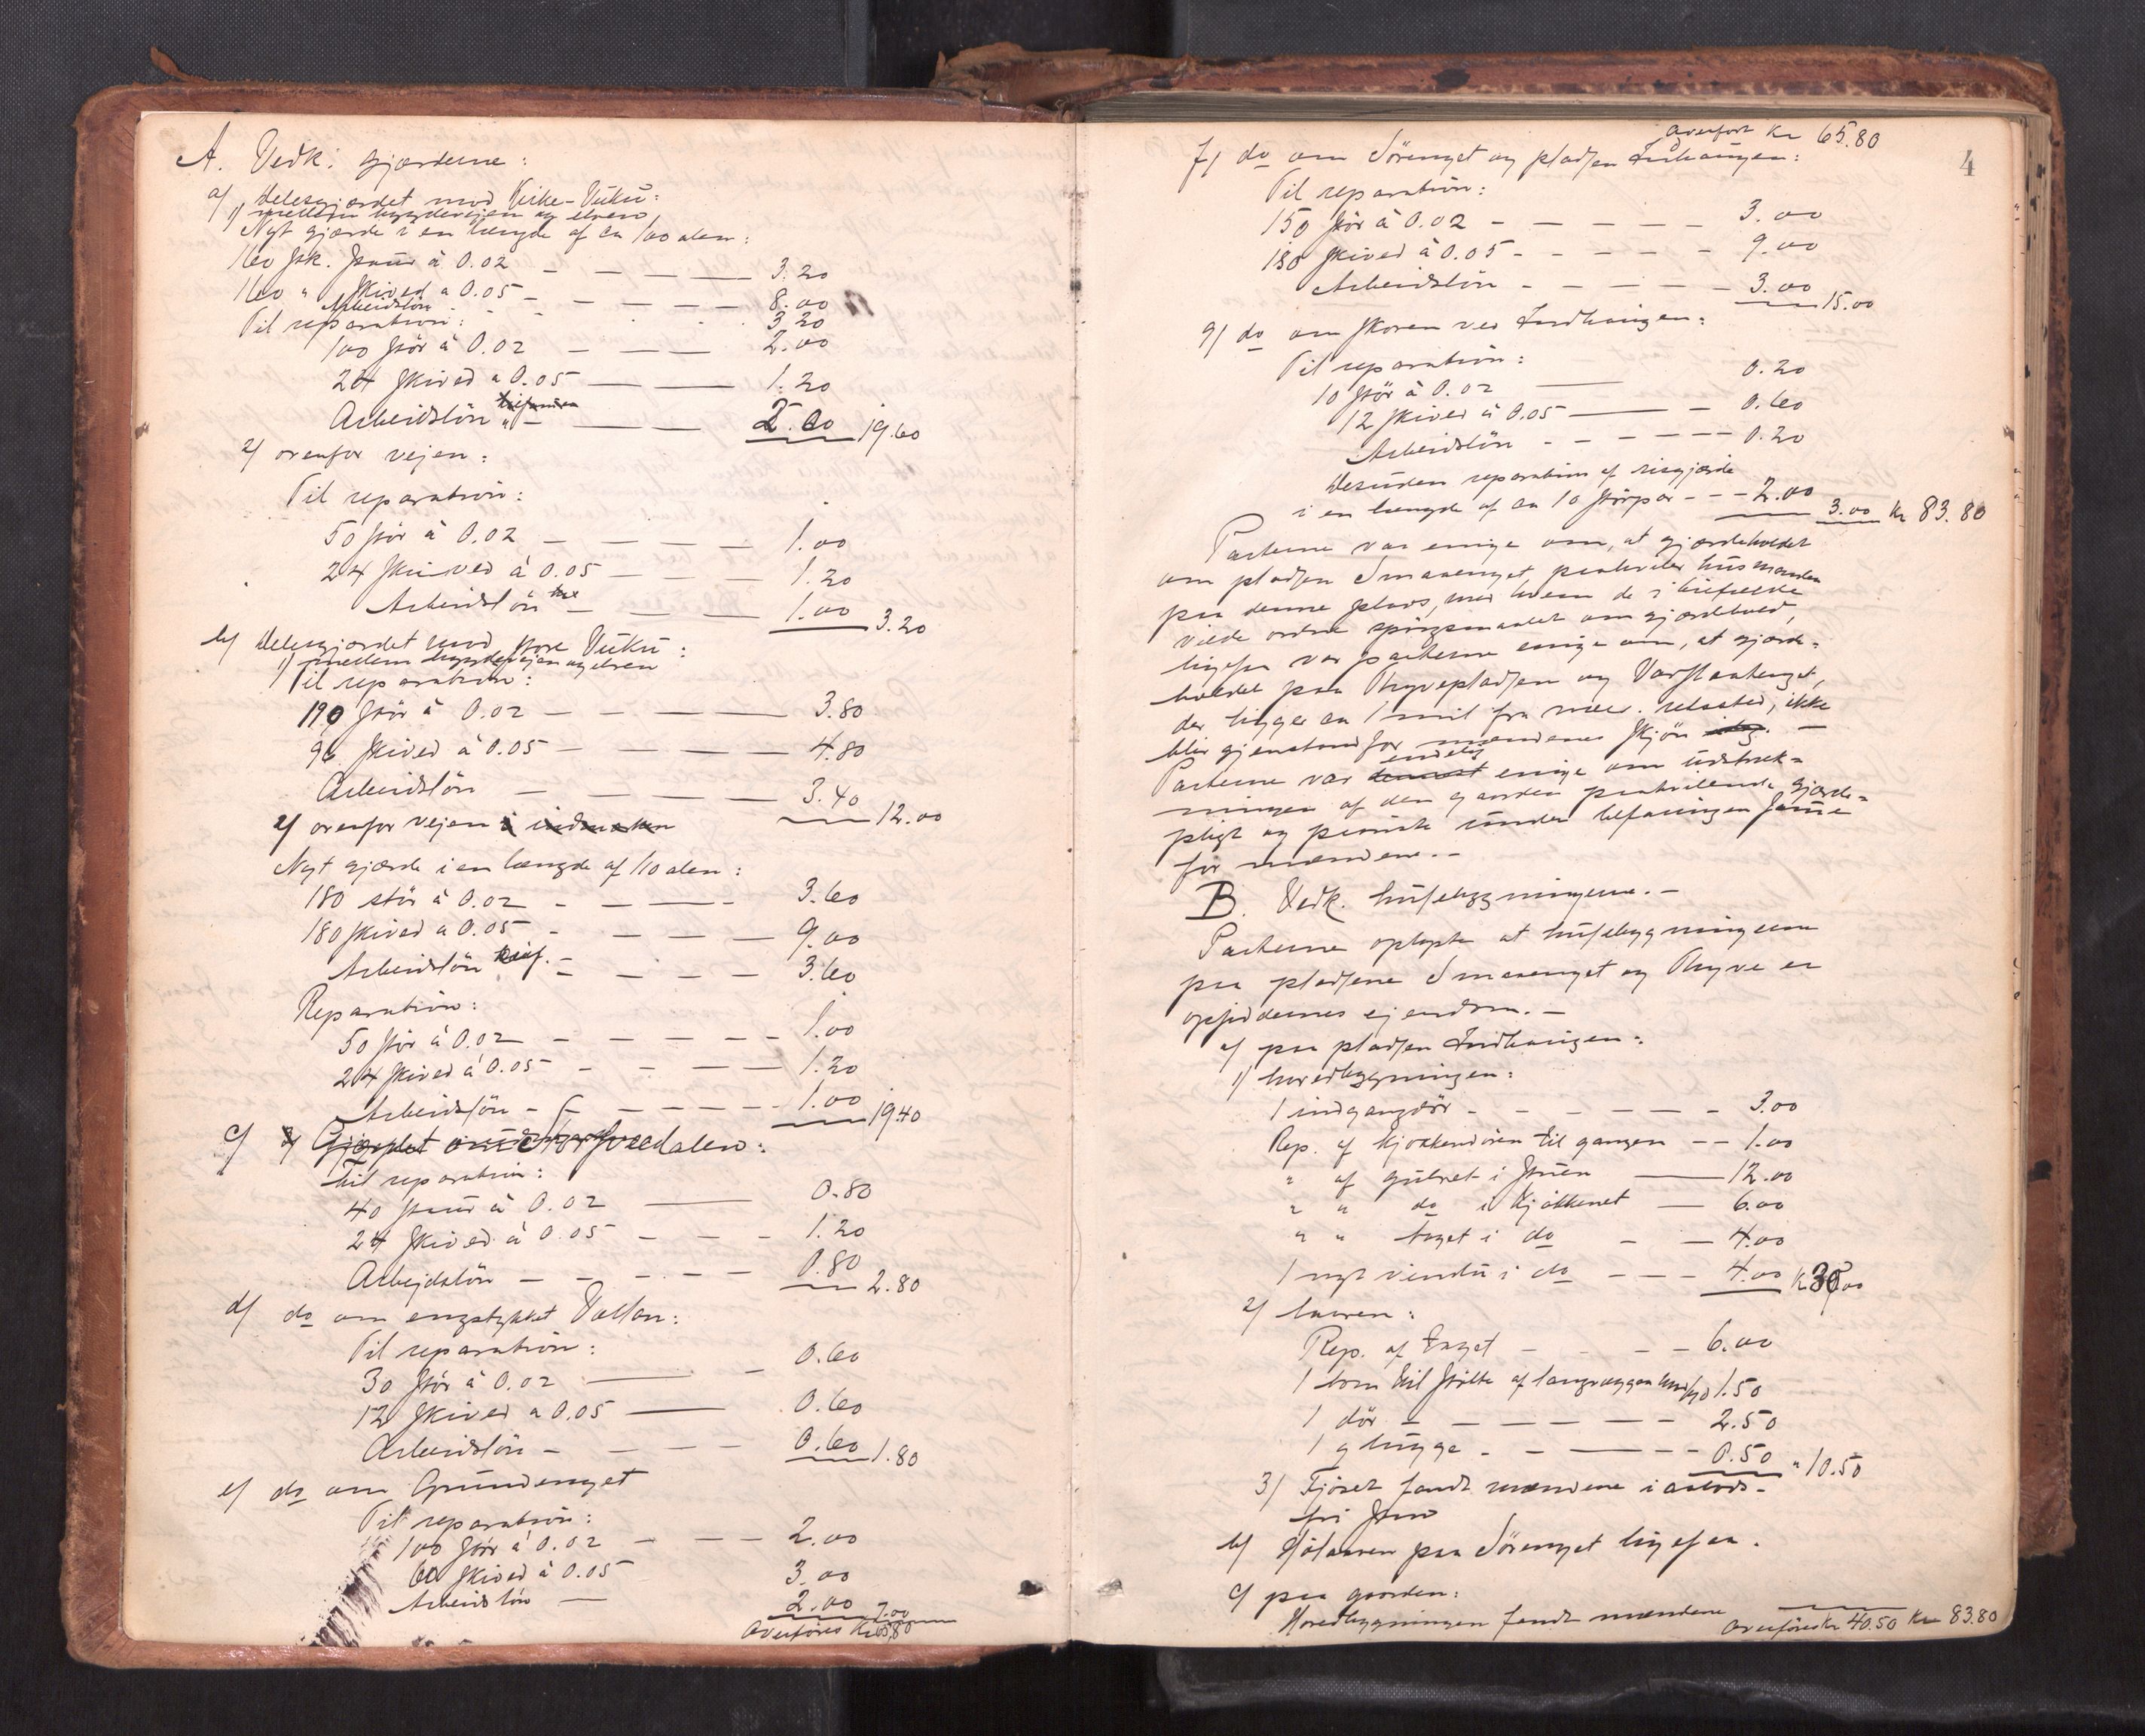 A. Vedk: gjærderne:
a) Delesgjærdet mod Kirke-Vuku:
1) mellem bygdevejen og elven
Nyt gjærde i en længde af ca 100 alen:
160 stk. staur à 0.02 - - - - 3.20
160 " skived a 0.05 - - - - 8.00
Arbeidslön - - - 3.20
Til reparation:
100 stör à 0.02 - - - 2.00
24 skived a 0.05 - - 1.20
Arbeidslön " - - - 2.00 19.60
2) ovenfor vejen:
Til reparation:
50 stör à 0.02 - - - - 1.00
24 skived à 0.05 - - - 1.20
Arbeidslön - - - 1.00 3.20
b) Delesgjærdet mod store Vuku:
1) mellem bygdevejen og elven
Til reparation:
190 stör à 0.02 - - - - 3.80
96 skived à 0.05 - - - - 4.80
Arbeidslön - - - - 3.40 12.00
2) ovenfor vejen i indmarken
Nyt gjærde i en længde af 110 alen:
180 stör à 0.02 - - - - 3.60
180 skived a 0.05 - - - - 9.00
Arbeidslön - - - - 3.60
Reparation:
50 stör à 0.02 - - - - - 1.00
24 skived à 0.05 - - - - 1.20
Arbeidslön - - - - - 1.00 19.40
c) Gjærdet om
Til reparation:
40 staur à 0.02 - 0.80
24 skived à 0.05 - - - 1.20
Arbejdslön - - - - - 0.80 2.80
d) do om engstykket Vollan:
Til reparation:
30 stör à 0.02 - - 0.60
12 skived a 0.05 - 0.60
Arbeidslön - - - - 0.60 1.80
e) do om Grundenget
Til reparation:
100 stör à 0.02 - - - 2.00
60 skived à 0.05 3.00
Arbeidslön - 2.00 7.00
Overføres Kr 65,80
overført Kr 65.80
4
f) do om Sörenget og pladsen Indhaugen:
Til reparation:
150 stör à 0.02 - - - - - 3.00
180 skived à 0.05 - - - - - 9.00
Arbeidslön - - - - - 3.00 15.00
g) do om skoren ved Indhaugen:
Til reparation:
10 stör à 0.02 - 0.20
12 skived à 0.05 - - 0.60
Arbeidslön - - - - - 0.20
Desuden reparation af risgjærde
i en længde af ca 10 störpar - - - 2.00 3.00 Kr 83.80
Parterne var enige om, at gjærdeholdet
om pladsen Smaaenget paahviler husmanden
paa denne plads, med hvem de i tilfælde
vilde ordne spörgsmaalet om gjærdehold,
ligesaa var parterne enige om, at gjærde-
holdet paa Thyvepladsen og Varslaatenget,
der ligger ca 1 mil fra vedk. retssted, ikke
blir gjenstand for mændenes skjön. -
Parterne var endelig enige om udstræk-
ningen af den gaarden paahvilende gjærde-
pligt og paaviste under befaringen samme
for mændene. -
B. Vedk. husebygningerne. -
Parterne oplyste at husebygningerne
paa pladsene Smaaenget og Thyve er
opsiddernes ejendom. -
a) paa pladsen Indhaugen:
1) hovedbygningen:
1 indgangdör - - - - - - 3.00
Rep. af kjøkkendören til gangen - - 1.00
" af gulvet i stuen - 12.00
" " do i kjøkkenet - 6.00
" " taget i do - - 4.00
1 nyt vindu i do - - - 4.00 Kr 30.00
2) laaven:
Rep. af taget - - - - 6.00
1 bom til stötte af langvæggen 1.50
1 dör - - - - - - 2.50
1 glugge - - - - - 0.50 " 10.50
3) Fjöset fandt mændene i aabods-
fri stand
b) Höladen paa Sörenget ligesaa.
c) paa gaarden:
Hovedbygningen fandt mændene
Overføres Kr 40.50 Kr 83.80